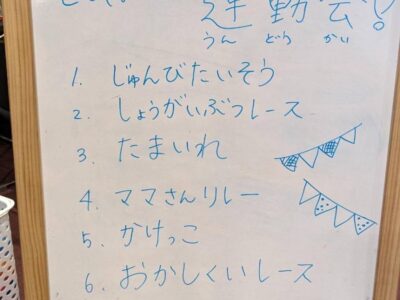 運動会!
うんどうかい
1. じゅんびたいそう
2. しょうがいぶつレース
3. たまいれ
4. ママさんリレー
5. かけっこ
6. おかしくいレース